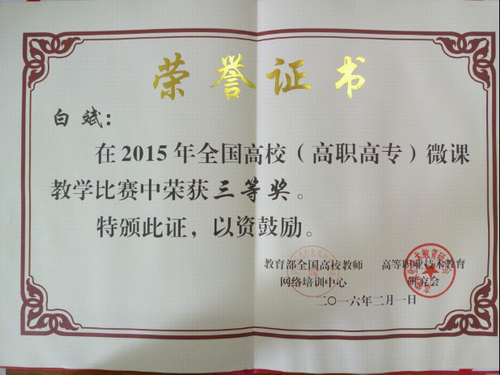 荣誉证书
白斌：
在2015年全国高校（高职高专）微课
教学比赛中荣获三等奖。
特颁此证，以资鼓励。
教育部全国高校教师 高等职业技术教育
网络培训中心 研究会
二〇一六年二月一日